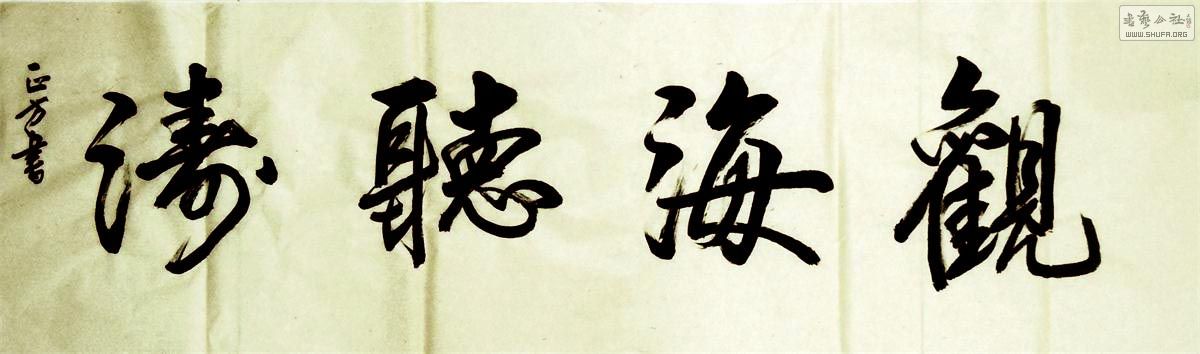 觀海聽濤
正方書
书艺公社
WWW.SHUFA.ORG